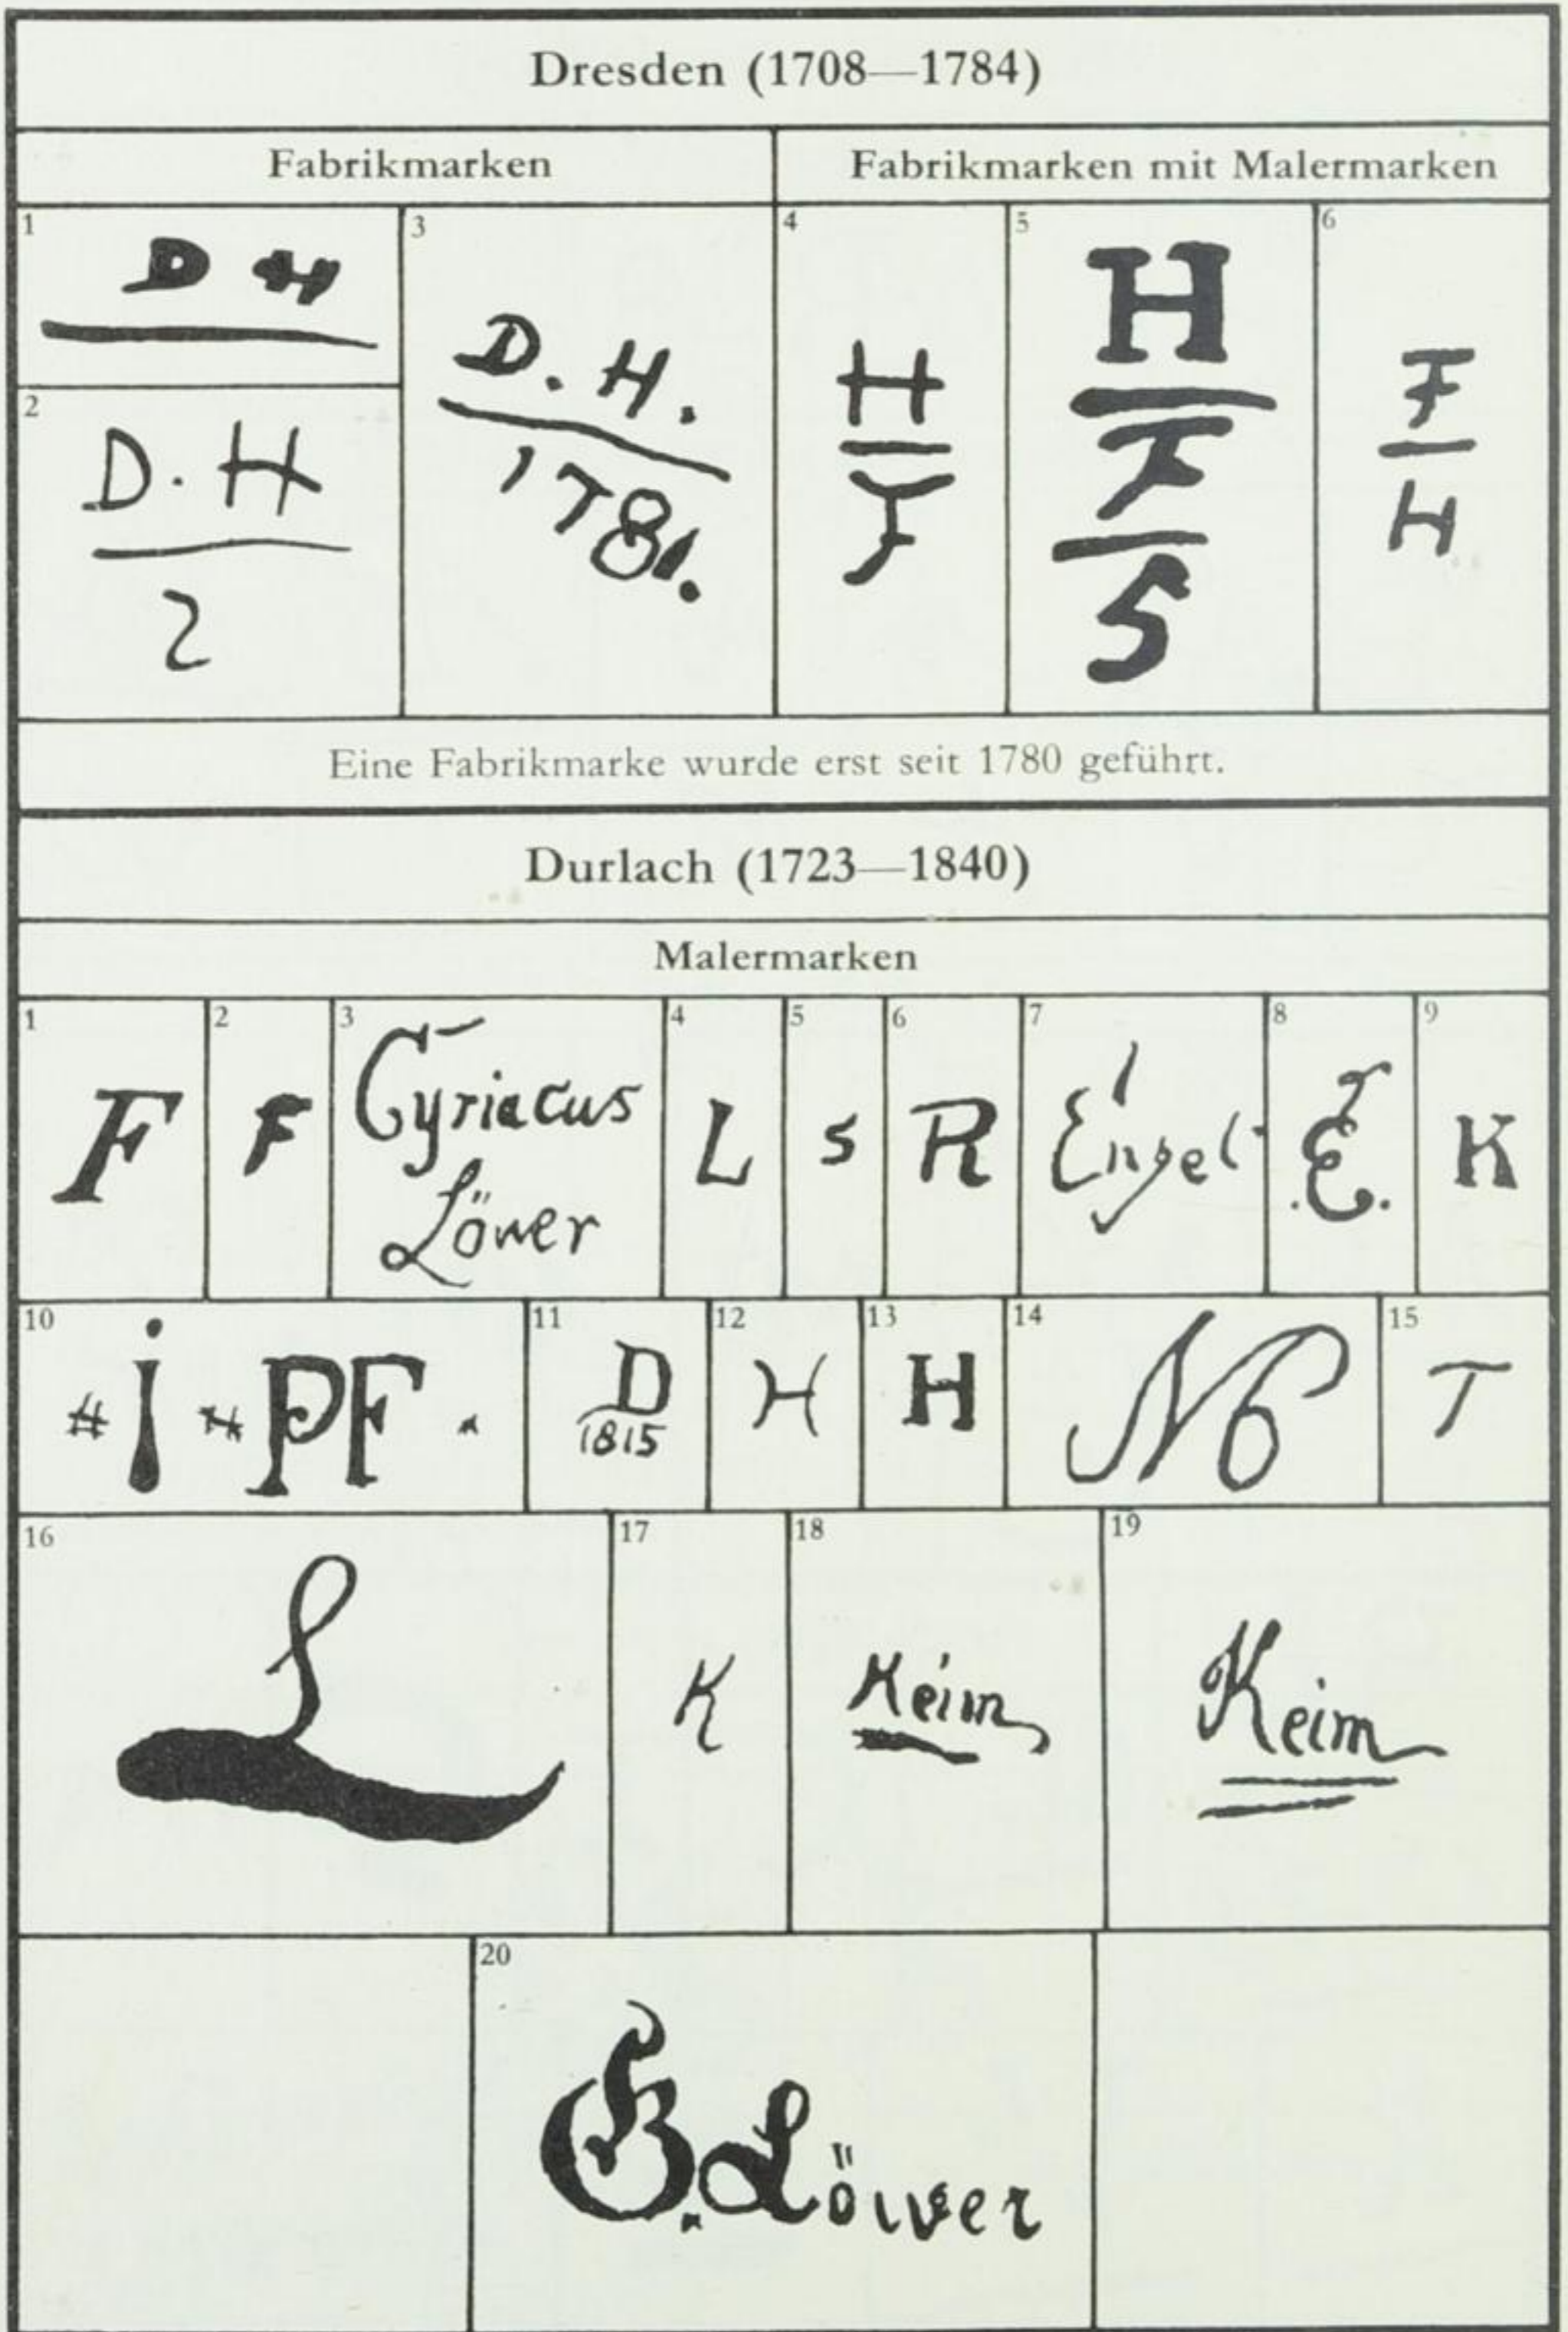 Dresden (1708—1784)
Fabrikmarken
Fabrikmarken mit Malermarken
1
D H
2
D. H
2
3
D. H.
1781.
4
H
F
5
H
F
5
6
F
H
Eine Fabrikmarke wurde erst seit 1780 geführt.
Durlach (1723—1840)
Malermarken
1
F
2
F
3
Cyriacus
Löwer
4
L
5
S
6
R
7
Engel
8
.E.
9
K
10
i PF
11
D
1815
12
H
13
H
14
15
T
16
L
17
K
18
Keim
19
Keim
20
G. Löwer